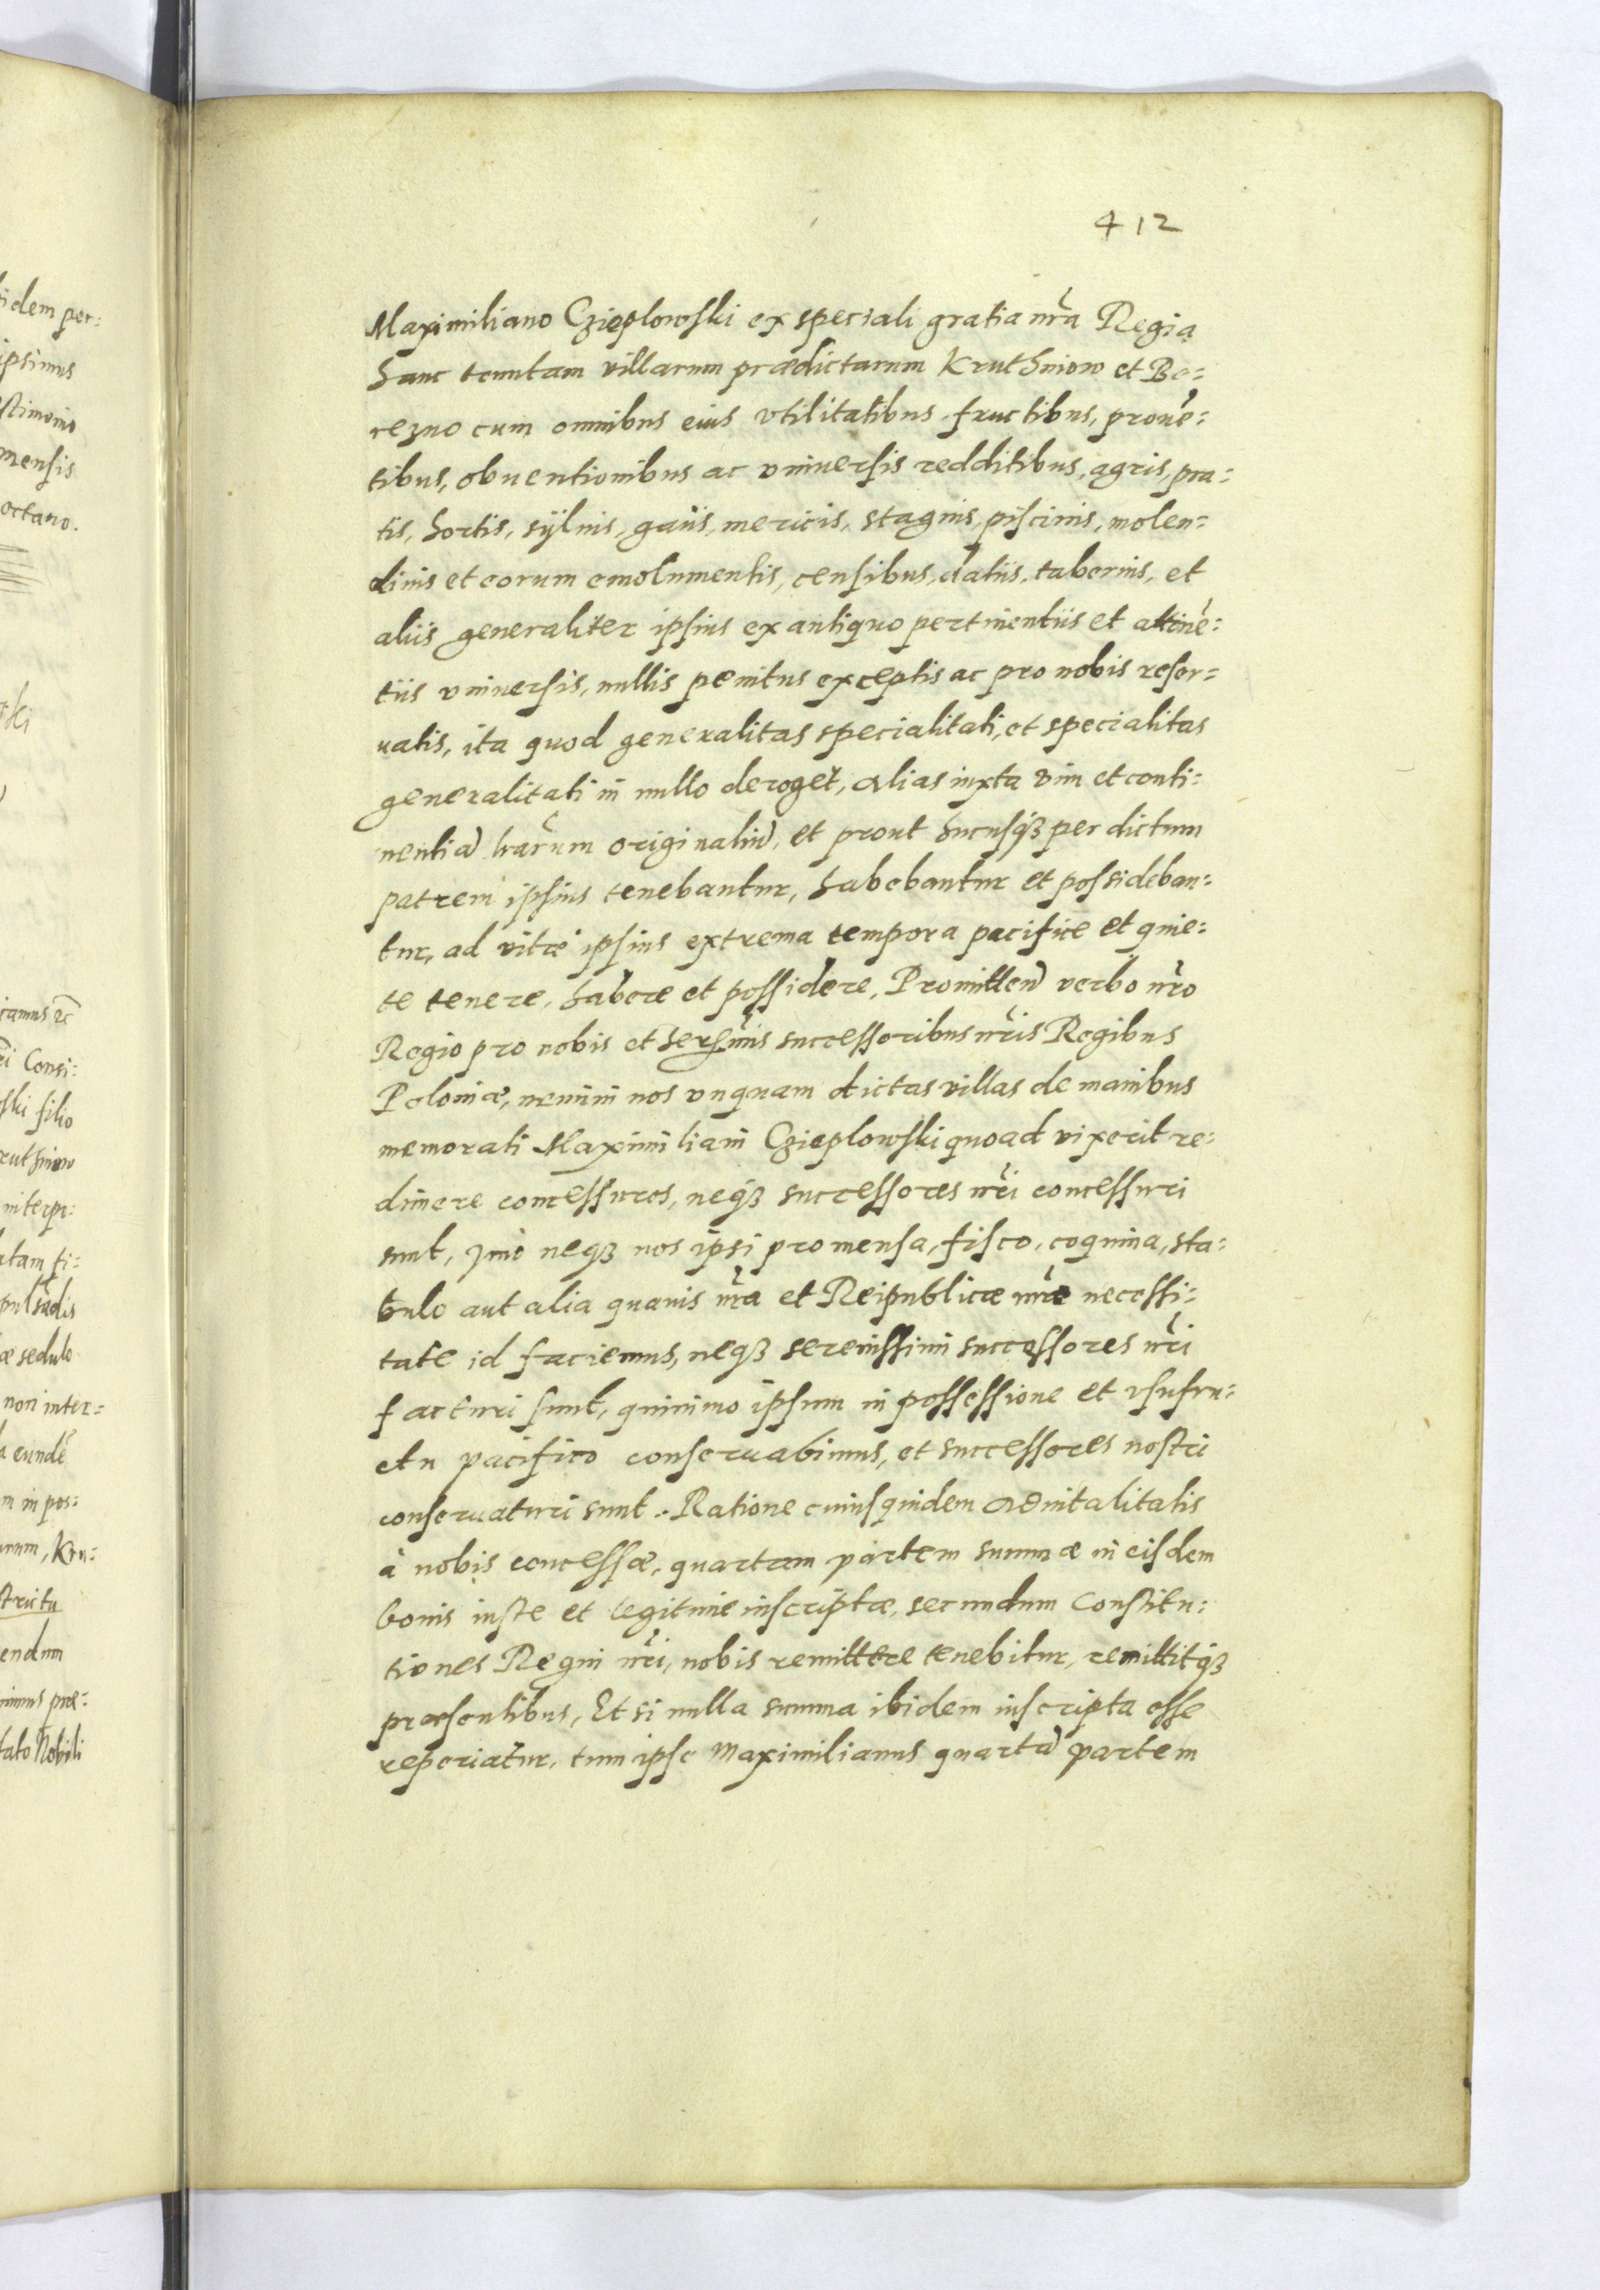 412
Maximiliano Czieplowski ex speciali gratia nr̃a Regia
hanc tenutam villarum prædictarum Kruthniow et Be=
rezno cum omnibus eius vtilitatibus, fructibus, provē=
tibus, obuentionibus ac vniuersis redditibus, agris, pra=
tis, hortis, sÿluis, gaiis, mericis, stagnis, piscinis, molen=
dinis et eorum emolumentis, censibus, datiis, tabernis, et
aliis generaliter ipsius ex antiquo pertinentiis et attinē=
tiis vniuersis, nullis penitus exceptis ac pro nobis reser=
uatis, ita quod generalitas specialitati, et specialitas
generalitati in nullo deroget, alias iuxta vim et conti=
nentiā lrārum originaliū, et prout hucusq3 per dictum
patrem ipsius tenebantur, habebantur et possideban=
tur, ad vitæ ipsius extrema tempora pacifice et quie=
te tenere, habere et possidere, Promitten̄ verbo nr̃o
Regio pro nobis et serſmis successoribus nr̃is Regibus
Poloniæ, nemini nos vnquam dictas villas de manibus
memorati Maximiliani Czieplowski quoad vixerit re=
dimere concessuros, neq3 successores nr̃i concessuri
sunt, Imo neq3 nos ipsi pro mensa, fisco, coquina, sta=
bulo aut alia quauis nr̃a et Reipublicæ nr̃æ necessi=
tate id faciemus, neq3 serenissimi successores nr̃i
facturi sunt, quinimo ipsum in possessione et vsufru=
ctu pacifico conseruabimus, et successores nostri
conseruaturi sunt. Ratione cuiusquidem aduitalitatis
à nobis concessæ, quartam partem summæ in eisdem
bonis iuste et legitime inscriptæ, secundum Constitu=
tiones Regni nr̃i, nobis remittere tenebitur, remittitq3
præsentibus, Et si nulla summa ibidem inscripta esse
reperiatur, tum ipse Maximilianus quartā partem